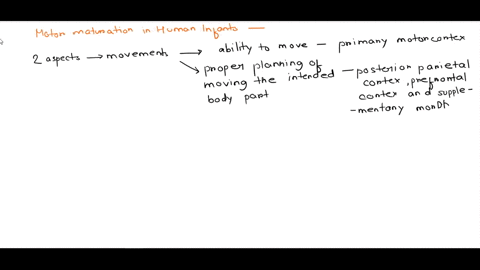 Motor maturation in Human Infants —
2 aspects → movements → ability to move — primary motor cortex
→ proper planning of moving the intended body part — posterior parietal cortex, prefrontal cortex and supple-
-mentary